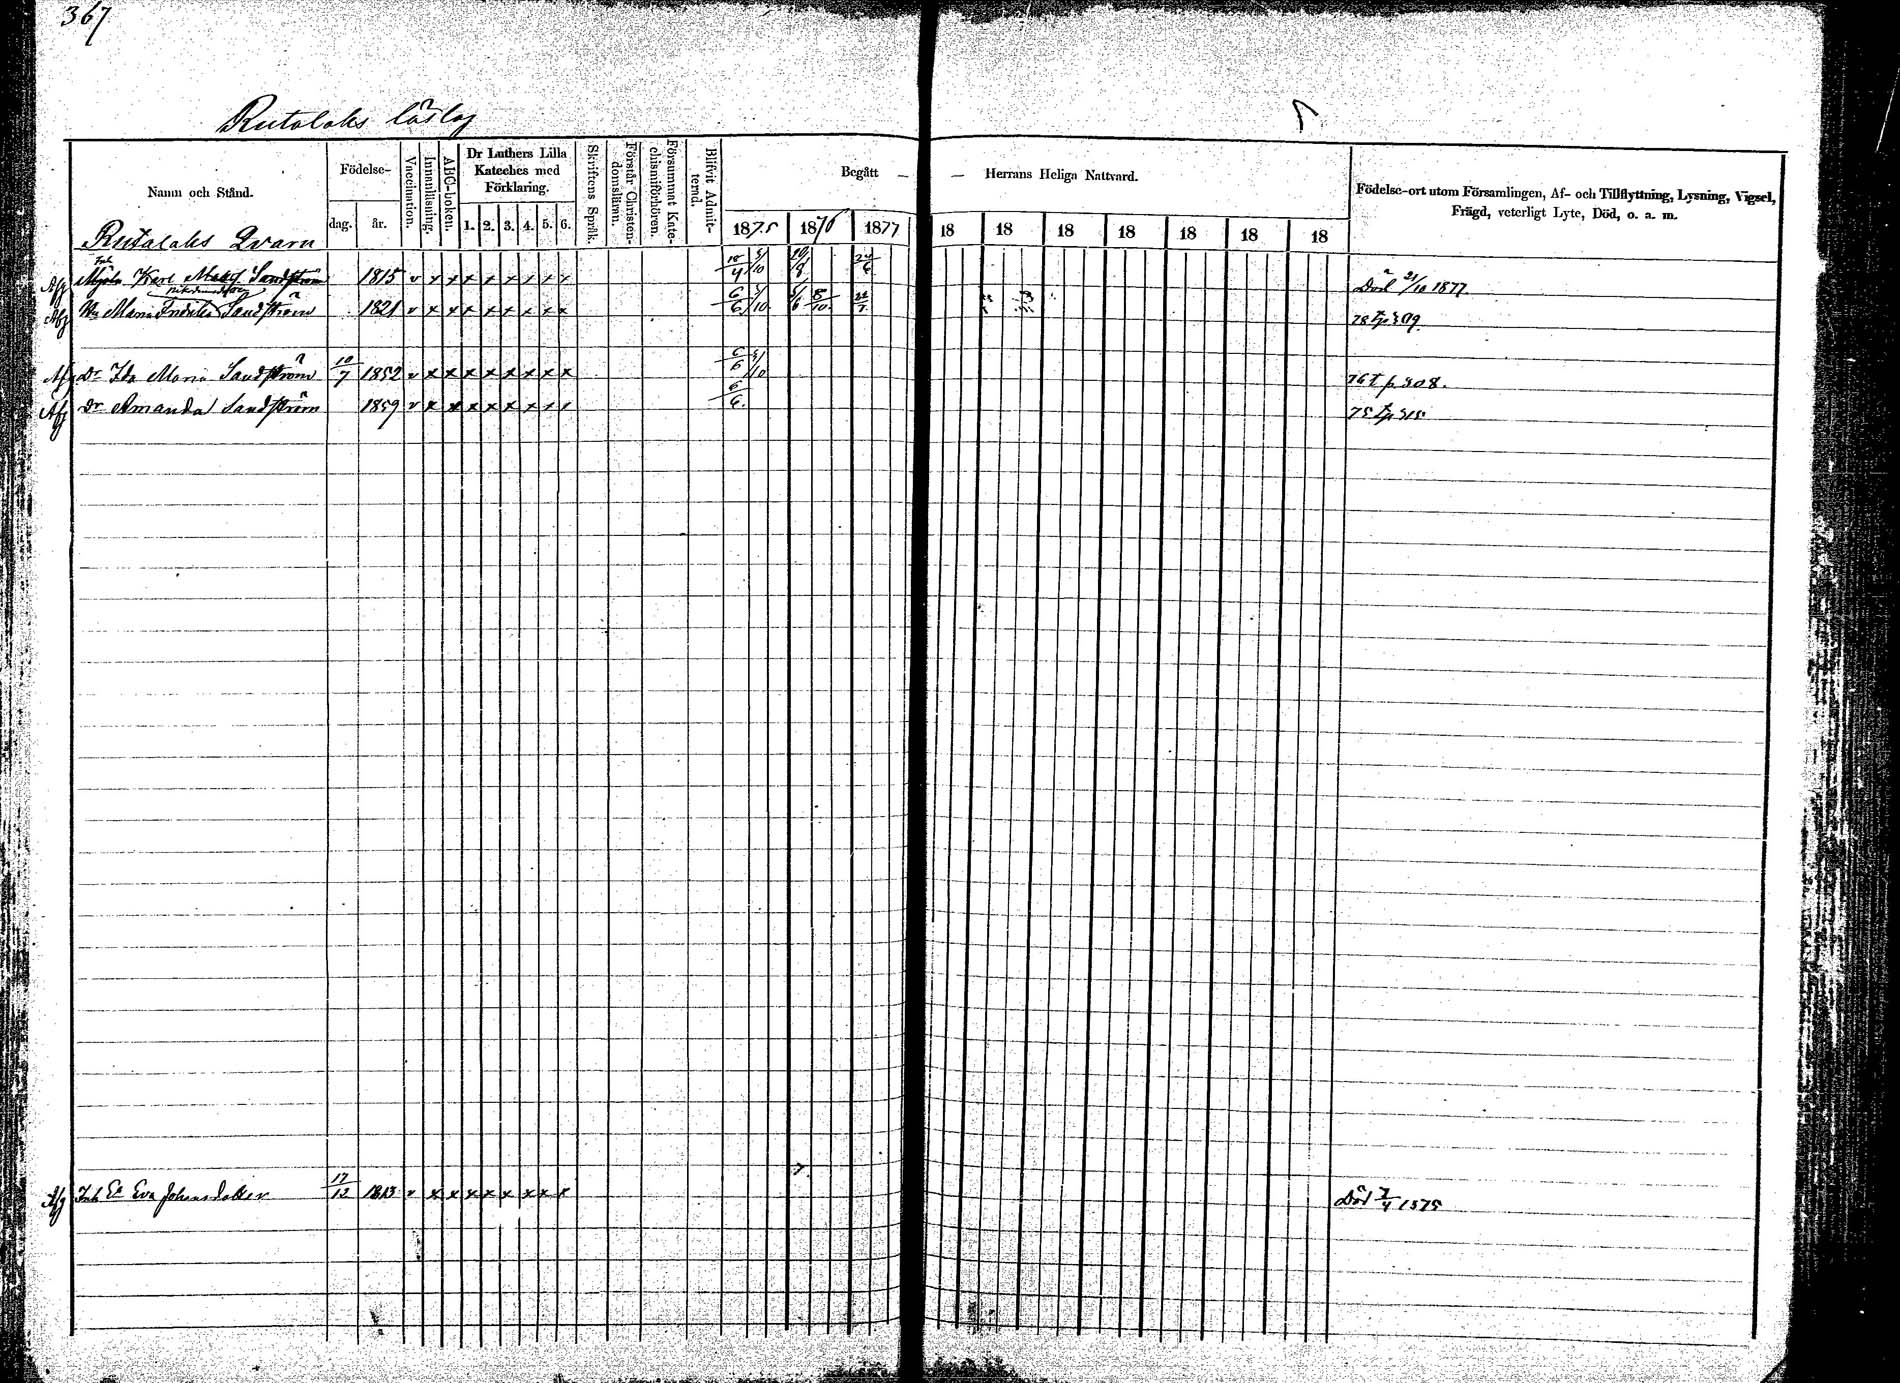 367
Rutalaks läslag
Namn och Stånd.
Födelse-
dag.
år.
Vaccination.
Innanläsning.
ABC-boken.
Dr Luthers Lilla
Kateches med
Förklaring.
1. 2. 3. 4. 5. 6.
Skriftens Språk.
Förstår Christen-
domsläran.
Försummat Kate-
chismiförhören.
Blifvit Admit-
terad.
Begått — — Herrans Heliga Nattvard.
1875 1876 1877 18 18 18 18 18 18 18
Födelse-ort utom Församlingen, Af- och Tillflyttning, Lysning, Vigsel,
Frägd, veterligt Lyte, Död, o. a. m.
Rutalaks Qvarn
Afg Karl Sandström 1815 v x x x x x x x x 18/4 5/10 20/8 24/6 Död 21/10 1877
Afg Maria Sandström 1821 v x x x x x x x x 6/6 5/10 8/10 22/7 78 tp 309
Afg Dr Ida Maria Sandström 10/7 1852 v x x x x x x x x 6/6 5/10 76 t p 308.
Afg Dr Amanda Sandström 1859 v x x x x x x x x 6/6. 75 tp 315
Afg Inh Eva Johansdotter 17/12 1813 v x x x x x x x x Död 7/4 1875